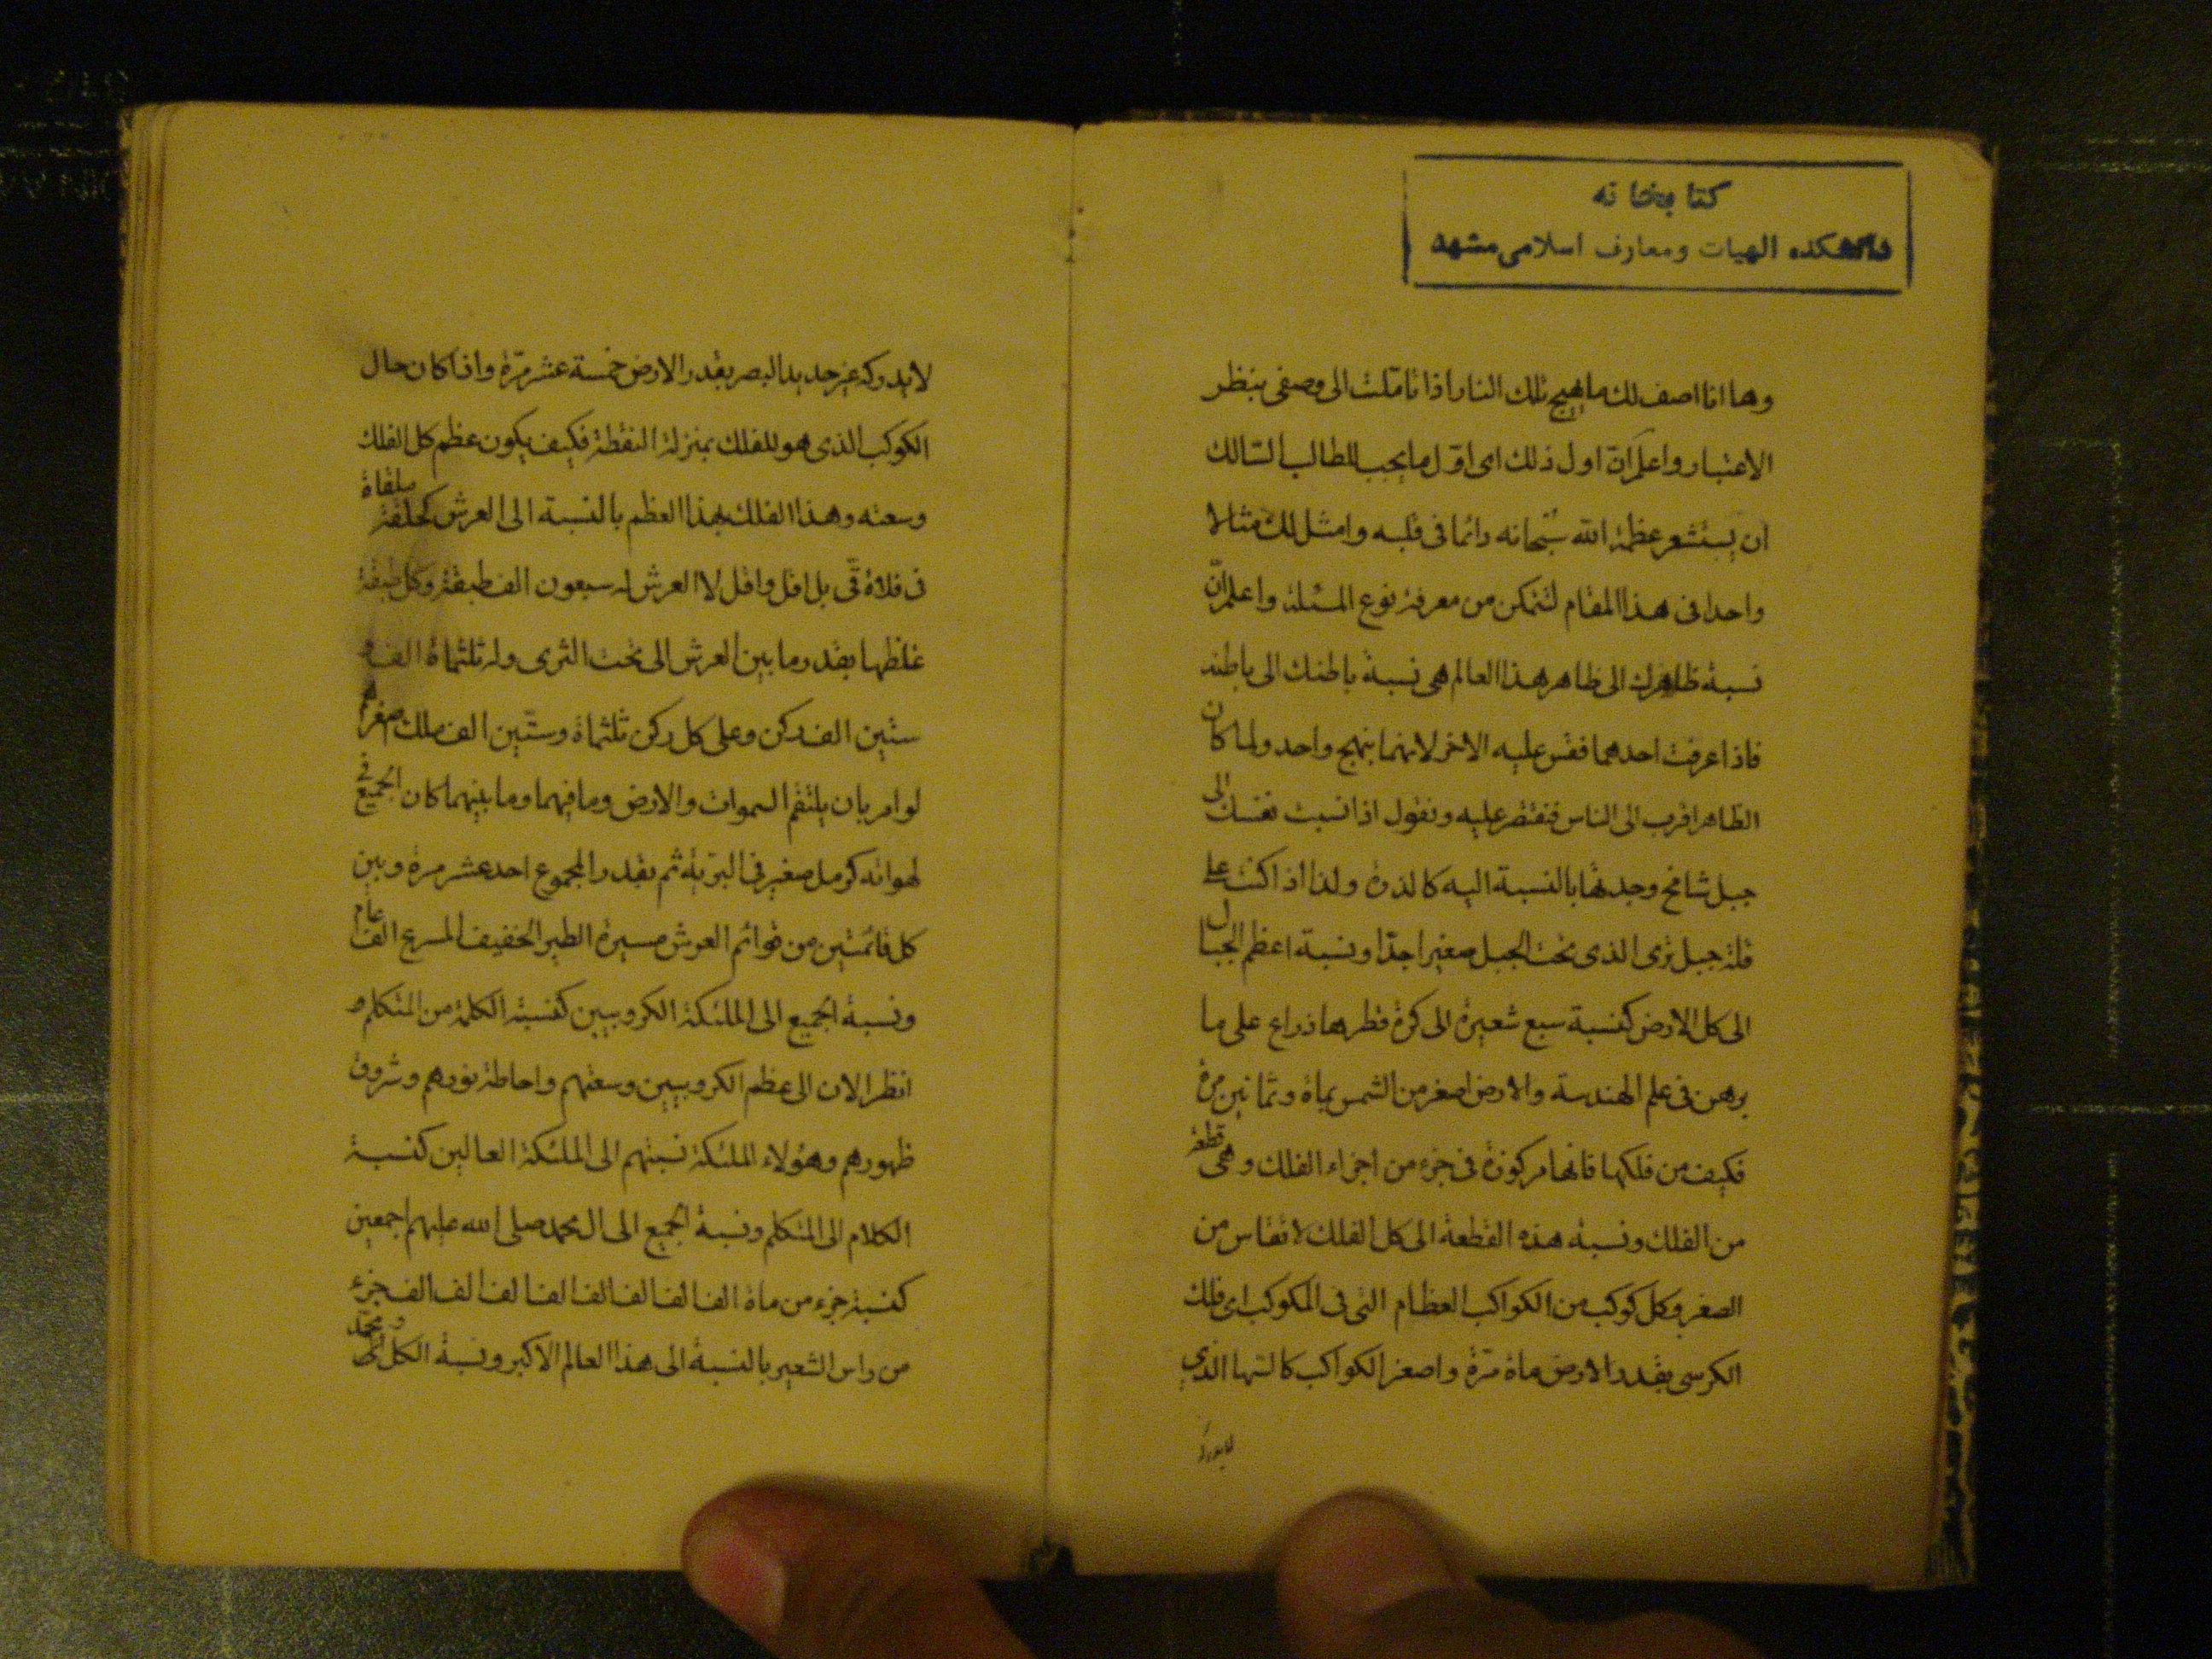 كتابخانه
دانشكده الهيات ومعارف اسلامى مشهد
وها انا اصف لك ما يهيج تلك النار اذا تاملت الى وصفى بنظر
الاعتبار واعلم ان اول ذلك اى اول ما يجب للطالب السالك
ان يستشعر عظمة الله سبحانه دائما فى قلبه وامثل لك مثالا
واحدا فى هذا المقام لتتمكن من معرفة نوع المسئلة واعلم انّ
نسبة ظاهرك الى ظاهر هذا العالم هى نسبة باطنك الى باطنه
فاذا عرفت احدهما فقس عليه الاخر لانهما بنهج واحد ولما كان
الظاهر اقرب الى الناس فنقتصر عليه ونقول اذا نسبت نفسك الى
جبل شامخ وجدتها بالنسبة اليه كالذرة ولذا اذا كنت على
قلة جبل ترى الذى تحت الجبل صغيرا جدّا ونسبة اعظم الجبال
الى كل الارض كنسبة سبع شعيرة الى كرة قطرها ذراع على ما
برهن فى علم الهندسة والارض اصغر من الشمس بماة وثمانين مرة
فكيف من فلكها فانها مركوزة فى جزء من اجزاء الفلك وهى قطعة
من الفلك ونسبة هذه القطعة الى كل الفلك لا تقاس من
الصغر وكل كوكب من الكواكب العظام التى فى المكوكب اى فلك
الكرسى بقدر الارض ماة مرّة واصغر الكواكب كالسها الذي
لايدركه
لايدركه غير حديد البصر بقدر الارض خمسة عشر مرّة واذا كان حال
الكوكب الذى هو للفلك بمنزلة النقطة فكيف يكون عظم كل الفلك
وسعته وهذا الفلك بهذا العظم بالنسبة الى العرش كحلقة ملقاة
فى فلاة قّى بل اقل واقل لا العرش له سبعون الف طبقة وكل طبقة
غلظها بقدر ما بين العرش الى تحت الثرى وله ثلثماة الف و
ستين الف ركن وعلى كل ركن ثلثماة وستّين الف ملك اصغرهم
لو امر بان يلتقم السموات والارض وما فيهما وما بينهما كان الجميع فى
لهواته كرمل صغير فى البرّية ثم بقدر المجموع احد عشر مرة وبين
كل قائمتين من قوائم العرش مسيرة الطير الخفيف المسرع الف عام
ونسبة الجميع الى الملئكة الكروبيين كنسبة الكلمة من المتكلم و
انظر الان الى عظم الكروبيين وسعتهم واحاطة نورهم وشروق
ظهورهم وهؤلاء الملئكة نسبتهم الى الملئكة العالين كنسبة
الكلام الى المتكلم ونسبة الجميع الى ال محمد صلى الله عليهم اجمعين
كنسبة جزء من ماة الف الف الف الف الف الف الف جزء
من راس الشعير بالنسبة الى هذا العالم الاكبر ونسبة الكل الى محمّد